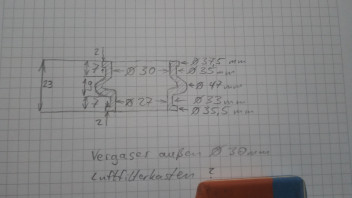 2
7
9
7
2
23
Ø 30
Ø 27
Ø 37,5 mm
Ø 35 mm
Ø 47 mm
Ø 33 mm
Ø 35,5 mm
Vergaser außen Ø 30 mm
Luftfilterkasten ?